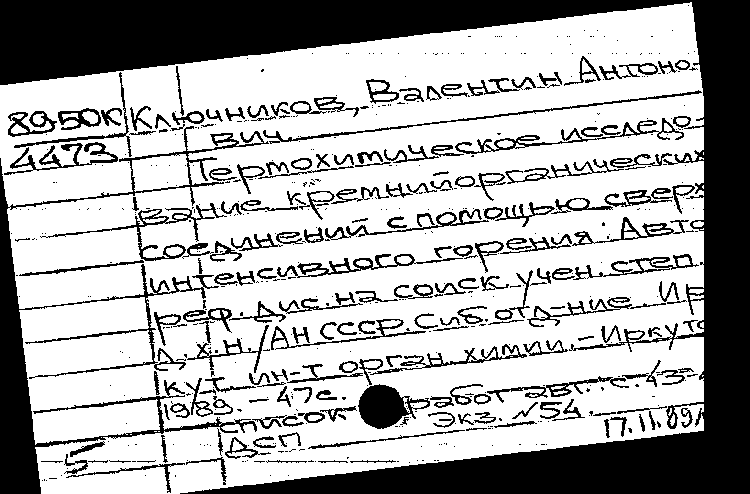 89-50К Ключников, Валентин Антоно-
4473 вич.
Термохимическое исследо-
вание кремнийорганических
соединений с помощью сверх
интенсивного горения: Авто
реф. дис. на соиск. учен. степ.
д. х. н. /АН СССР. Сиб. отд-ние. Ир
кут. ин-т орган. химии. - Иркутс
1989. - 47с.
список работ авт.: с. 43-
ДСП Экз. №54.
5 17.11.89